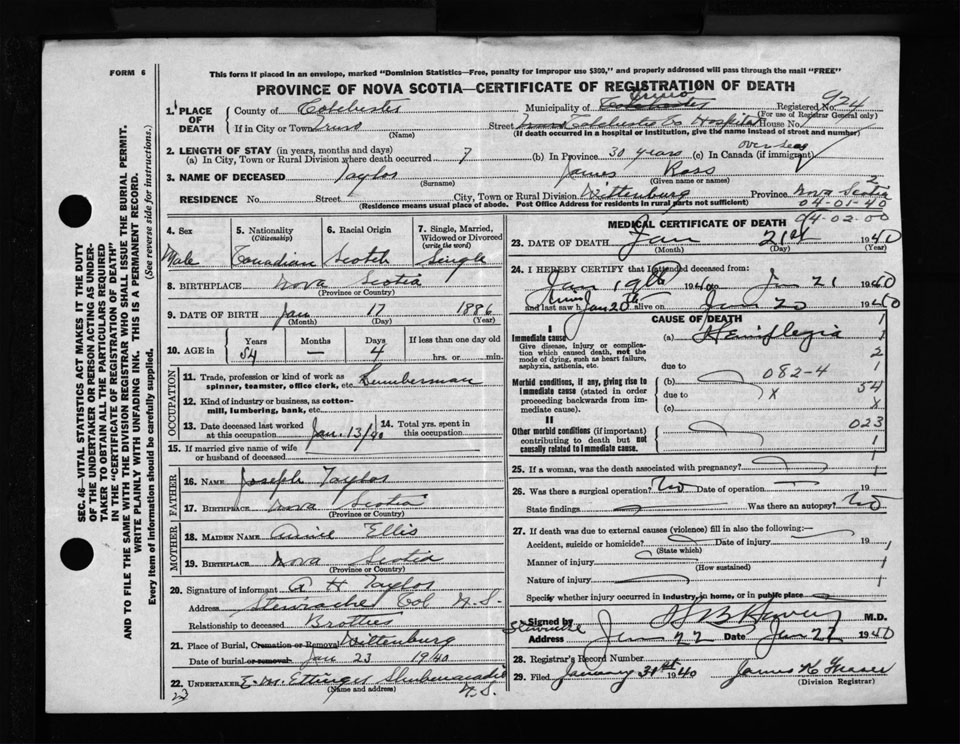 FORM 6
This form if placed in an envelope, marked "Dominion Statistics—Free, penalty for improper use $300," and properly addressed will pass through the mail "FREE"
PROVINCE OF NOVA SCOTIA—CERTIFICATE OF REGISTRATION OF DEATH
1. PLACE OF DEATH
County of Colchester
Municipality of Truro Colchester
Registered No. 924
(For use of Registrar General only)
If in City or Town Truro
(Name)
Street Colchester Co Hospital House No.
(If death occurred in a hospital or institution, give the name instead of street and number)
2. LENGTH OF STAY (in years, months and days)
(a) In City, Town or Rural Division where death occurred 7
(b) In Province 30 years
(c) In Canada (if immigrant) overseas
3. NAME OF DECEASED Taylor James Ross
(Surname) (Given name or names)
RESIDENCE No. Street City, Town or Rural Division Wittenburg Province Nova Scotia 2
(Residence means usual place of abode. Post Office Address for residents in rural parts not sufficient)
04-01-40
04-02-00
4. Sex
Male
5. Nationality (Citizenship)
Canadian
6. Racial Origin
Scotch
7. Single, Married, Widowed or Divorced (write the word)
Single
8. BIRTHPLACE Nova Scotia
(Province or Country)
9. DATE OF BIRTH Jan 17 1886
(Month) (Day) (Year)
10. AGE in Years Months Days If less than one day old
54 — 4 hrs. or min.
OCCUPATION
11. Trade, profession or kind of work as spinner, teamster, office clerk, etc. Lumberman
12. Kind of industry or business, as cotton-mill, lumbering, bank, etc.
13. Date deceased last worked at this occupation Jan. 13/40
14. Total yrs. spent in this occupation
15. If married give name of wife or husband of deceased
FATHER
16. NAME Joseph Taylor
17. BIRTHPLACE Nova Scotia
(Province or Country)
MOTHER
18. MAIDEN NAME Annie Ellis
19. BIRTHPLACE Nova Scotia
(Province or Country)
20. Signature of informant A H Taylor
Address Stewiacke Col N.S.
Relationship to deceased Brother
21. Place of Burial, Cremation or Removal Wittenburg
Date of burial or removal Jan 23 1940
22. UNDERTAKER E. M. Ettinger Shubenacadie N.S.
(Name and address)
23
MEDICAL CERTIFICATE OF DEATH
23. DATE OF DEATH Jan 21st 1940
(Month) (Day) (Year)
24. I HEREBY CERTIFY that I attended deceased from:
Jan 19th 1940 to Jan 21 1940
and last saw h Jan 20th alive on Jan 20 1940
CAUSE OF DEATH
I
Immediate cause
Give disease, injury or complication which caused death, not the mode of dying, such as heart failure, asphyxia, asthenia, etc.
(a) Hemiplegia 1
2
due to 082-4 1
Morbid conditions, if any, giving rise to immediate cause (stated in order proceeding backwards from immediate cause).
(b) 54
due to X
(c) X
II
Other morbid conditions (if important) contributing to death but not causally related to immediate cause.
023
1
25. If a woman, was the death associated with pregnancy? 1
26. Was there a surgical operation? No Date of operation 19
State findings Was there an autopsy? No
27. If death was due to external causes (violence) fill in also the following:—
Accident, suicide or homicide? Date of injury 19 1
(State which)
Manner of injury 1
(How sustained)
Nature of injury 1
Specify whether injury occurred in industry, in home, or in public place
Signed by M.D.
Address Jan 22 Date Jan 22 1940
28. Registrar's Record Number
29. Filed January 31st 1940 James K Fraser
(Division Registrar)
SEC. 46—VITAL STATISTICS ACT MAKES IT THE DUTY OF THE UNDERTAKER OR PERSON ACTING AS UNDERTAKER TO OBTAIN ALL THE PARTICULARS REQUIRED IN THE "CERTIFICATE OF REGISTRATION OF DEATH"
AND TO FILE THE SAME WITH THE DIVISION REGISTRAR WHO SHALL ISSUE THE BURIAL PERMIT.
WRITE PLAINLY WITH UNFADING INK. THIS IS A PERMANENT RECORD.
Every item of information should be carefully supplied. (See reverse side for instructions.)